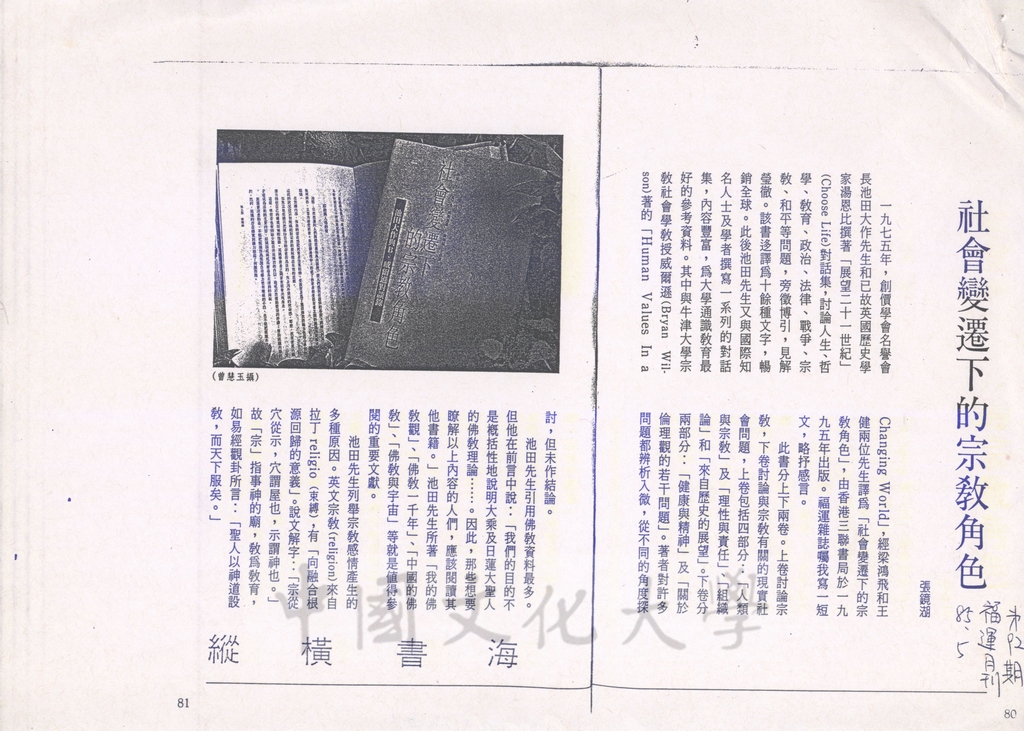 社會變遷下的宗教角色
張鏡湖
一九七五年，創價學會名譽會
長池田大作先生和已故英國歷史學
家湯恩比撰著「展望二十一世紀」
(Choose Life)對話集，討論人生、哲
學、教育、政治、法律、戰爭、宗
教、和平等問題，旁徵博引，見解
瑩徹。該書迻譯爲十餘種文字，暢
銷全球。此後池田先生又與國際知
名人士及學者撰寫一系列的對話
集，內容豐富，爲大學通識教育最
好的參考資料。其中與牛津大學宗
教社會學教授威爾遜(Bryan Wil-
son)著的「Human Values In a
Changing World」，經梁鴻飛和王
健兩位先生譯爲「社會變遷下的宗
教角色」，由香港三聯書局於一九
九五年出版。福運雜誌囑我寫一短
文，略抒感言。
此書分上下兩卷。上卷討論宗
教，下卷討論與宗教有關的現實社
會問題，上卷包括四部分：「人類
與宗教」及「理性與責任」、「組織
論」和「來自歷史的展望」。下卷分
兩部分：「健康與精神」及「關於
倫理觀的若干問題」。著者對許多
問題都辨析入微，從不同的角度探
討，但未作結論。
池田先生引用佛教資料最多。
但他在前言中說：「我們的目的不
是概括性地說明大乘及日蓮大聖人
的佛教理論……。因此，那些想要
瞭解以上內容的人們，應該閱讀其
他書籍。」池田先生所著「我的佛
教觀」、「佛教一千年」、「中國的佛
教」、「佛教與宇宙」等就是值得參
閱的重要文獻。
池田先生列舉宗教感情產生的
多種原因。英文宗教(religion)來自
拉丁 religio（束縛），有「向融合根
源回歸的意義」。說文解字：「宗從
宀從示，宀謂屋也，示謂神也。」
故「宗」指事神的廟，教爲教育，
如易經觀卦所言：「聖人以神道設
教，而天下服矣。」
社會變遷下
的宗教角色
(曾慧玉攝)
縱橫書海
中國文化大學
福運月刊
85.5
81
80